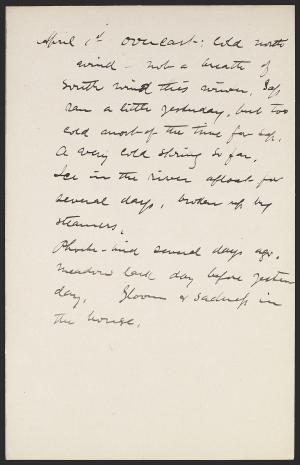 April 1st Overcast; Cold north
wind - not a breath of
South wind this moon. Sap
ran a little yesterday, but too
cold most of the time for sap.
A very cold spring so far.
Ice in the river afloat for
several days, broken up by
steamers.
Phoebe-bird several days ago,
meadow lark day before yester
day. Gloom & sadness in
the house.